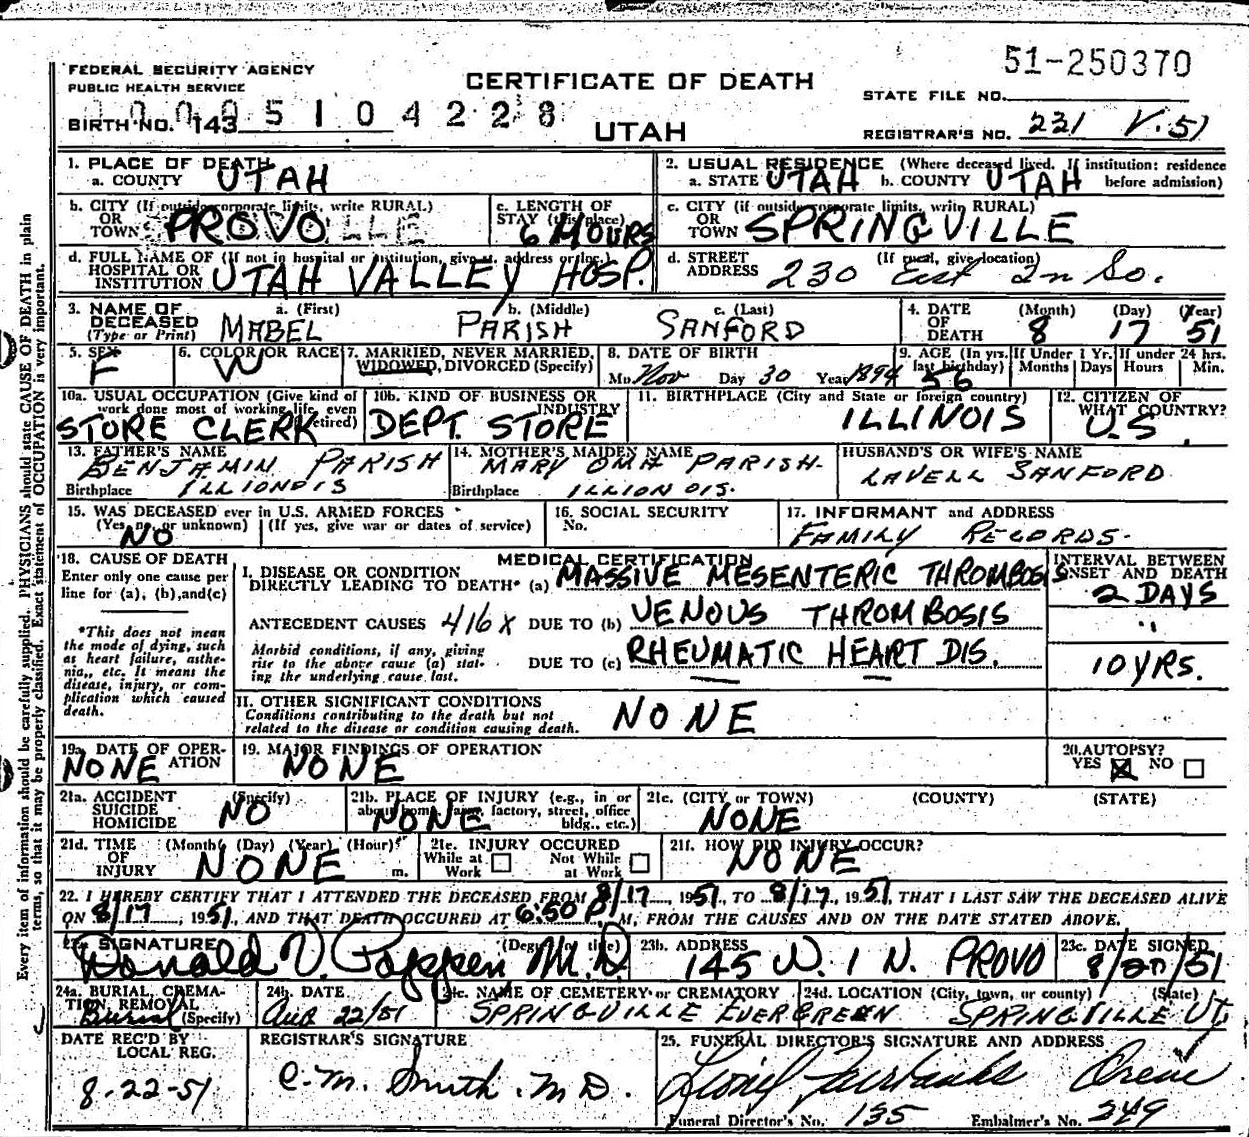 51-250370
FEDERAL SECURITY AGENCY
PUBLIC HEALTH SERVICE
CERTIFICATE OF DEATH
STATE FILE NO.
000 5104228
BIRTH NO. 143
UTAH
REGISTRAR'S NO. 221 V.51
1. PLACE OF DEATH
a. COUNTY UTAH
2. USUAL RESIDENCE (Where deceased lived. If institution: residence before admission)
a. STATE UTAH b. COUNTY UTAH
b. CITY (If outside corporate limits, write RURAL)
OR TOWN PROVO
c. LENGTH OF STAY (this place) 6 HOURS
c. CITY (if outside corporate limits, write RURAL)
OR TOWN SPRINGVILLE
d. FULL NAME OF (If not in hospital or institution, give st. address or loc.)
HOSPITAL OR INSTITUTION UTAH VALLEY HOSP.
d. STREET ADDRESS (If rural, give location) 230 East 2n So.
3. NAME OF DECEASED (Type or Print)
a. (First) MABEL b. (Middle) PARISH c. (Last) SANFORD
4. DATE OF DEATH (Month) (Day) (Year) 8 17 51
5. SEX F
6. COLOR OR RACE W
7. MARRIED, NEVER MARRIED, WIDOWED, DIVORCED (Specify)
8. DATE OF BIRTH
Mo. Nov Day 30 Year 1894
9. AGE (In yrs. last birthday) 56
If Under 1 Yr. Months Days
If under 24 hrs. Hours Min.
10a. USUAL OCCUPATION (Give kind of work done most of working life, even retired) STORE CLERK
10b. KIND OF BUSINESS OR INDUSTRY DEPT. STORE
11. BIRTHPLACE (City and State or foreign country) ILLINOIS
12. CITIZEN OF WHAT COUNTRY? U.S.
13. FATHER'S NAME BENJAMIN PARISH
Birthplace ILLIONOIS
14. MOTHER'S MAIDEN NAME MARY OMA PARISH
Birthplace ILLIONOIS.
HUSBAND'S OR WIFE'S NAME
LAVELL SANFORD
15. WAS DECEASED ever in U.S. ARMED FORCES
(Yes, no, or unknown) NO (If yes, give war or dates of service)
16. SOCIAL SECURITY No.
17. INFORMANT and ADDRESS
FAMILY RECORDS.
18. CAUSE OF DEATH
Enter only one cause per line for (a), (b), and (c)
*This does not mean the mode of dying, such as heart failure, asthenia, etc. It means the disease, injury, or complication which caused death.
MEDICAL CERTIFICATION
I. DISEASE OR CONDITION DIRECTLY LEADING TO DEATH* (a) MASSIVE MESENTERIC THROMBOSIS
INTERVAL BETWEEN ONSET AND DEATH
2 DAYS
ANTECEDENT CAUSES 416X DUE TO (b) VENOUS THROMBOSIS "
Morbid conditions, if any, giving rise to the above cause (a) stating the underlying cause last.
DUE TO (c) RHEUMATIC HEART DIS. 10 YRS.
II. OTHER SIGNIFICANT CONDITIONS
Conditions contributing to the death but not related to the disease or condition causing death.
NONE
19a. DATE OF OPERATION NONE
19. MAJOR FINDINGS OF OPERATION
NONE
20. AUTOPSY?
YES NO
21a. ACCIDENT SUICIDE HOMICIDE (Specify) NO
21b. PLACE OF INJURY (e.g., in or about home, farm, factory, street, office bldg., etc.) NONE
21c. (CITY or TOWN) (COUNTY) (STATE)
NONE
21d. TIME OF INJURY (Month) (Day) (Year) (Hour) m. NONE
21e. INJURY OCCURED
While at Work Not While at Work
21f. HOW DID INJURY OCCUR?
NONE
22. I HEREBY CERTIFY THAT I ATTENDED THE DECEASED FROM 8/17, 1951, TO 8/17, 1951, THAT I LAST SAW THE DECEASED ALIVE
ON 8/17, 1951, AND THAT DEATH OCCURED AT 6:50 P M, FROM THE CAUSES AND ON THE DATE STATED ABOVE.
SIGNATURE (Degree or title)
Donald V. Poppen M.D
23b. ADDRESS
145 N. 1 N. PROVO
23c. DATE SIGNED
8/20/51
24a. BURIAL, CREMATION, REMOVAL (Specify) Burial
24b. DATE
Aug 22/51
24c. NAME OF CEMETERY or CREMATORY
SPRINGVILLE EVERGREEN
24d. LOCATION (City, town, or county) (State)
SPRINGVILLE Ut.
DATE REC'D BY LOCAL REG.
8-22-51
REGISTRAR'S SIGNATURE
C.M. Smith. M D.
25. FUNERAL DIRECTOR'S SIGNATURE AND ADDRESS
Lionel Fairbanks Orem
Funeral Director's No. 135 Embalmer's No. 249
Every item of information should be carefully supplied. PHYSICIANS should state CAUSE OF DEATH in plain
terms, so that it may be properly classified. Exact statement of OCCUPATION is very important.